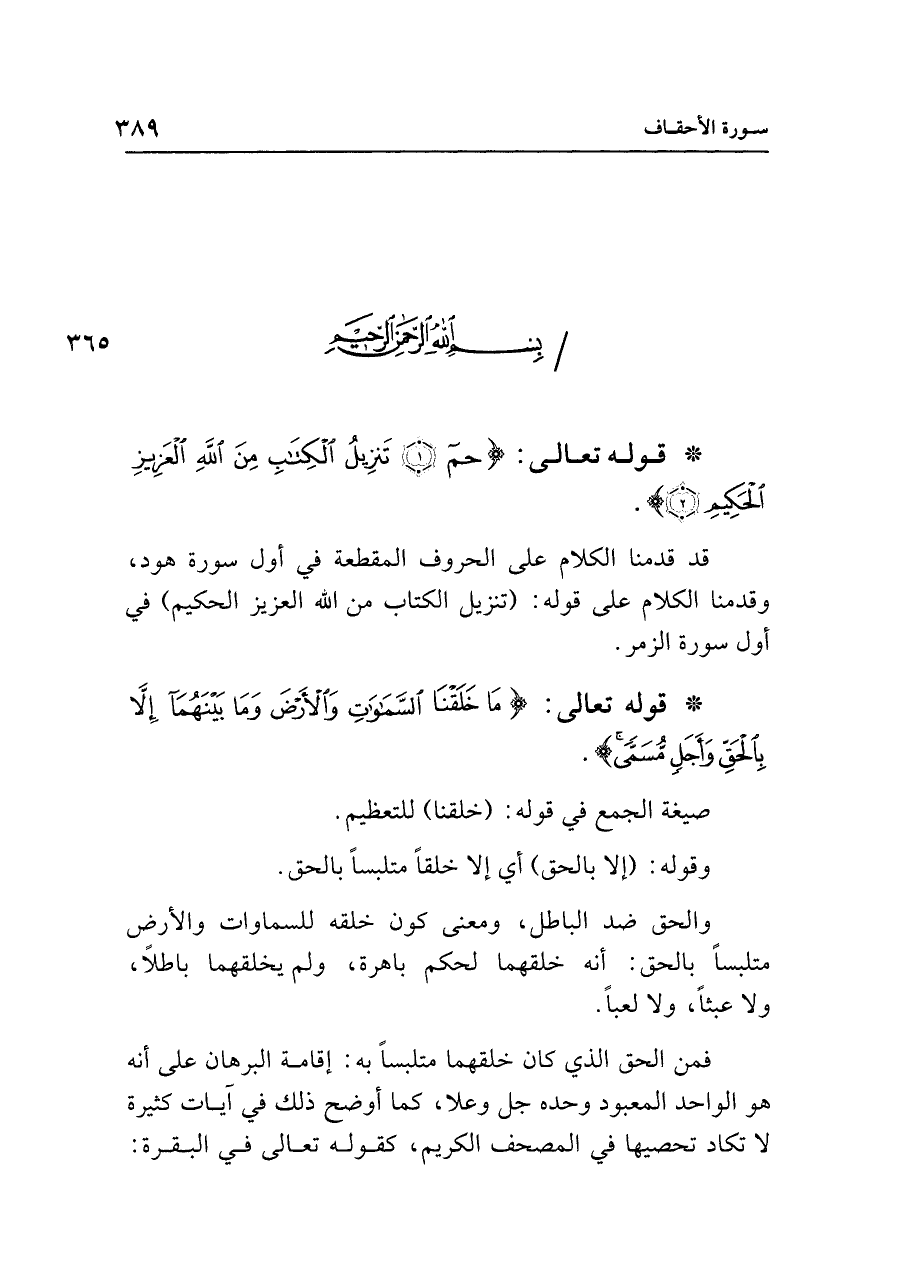 سورة الأحقاف ٣٨٩
/ بِسْمِ ٱللَّهِ ٱلرَّحْمَٰنِ ٱلرَّحِيمِ ٣٦٥
* قوله تعالى: ﴿حمٓ ١ تَنزِيلُ ٱلْكِتَٰبِ مِنَ ٱللَّهِ ٱلْعَزِيزِ
ٱلْحَكِيمِ ٢﴾.
قد قدمنا الكلام على الحروف المقطعة في أول سورة هود،
وقدمنا الكلام على قوله: (تنزيل الكتاب من الله العزيز الحكيم) في
أول سورة الزمر.
* قوله تعالى: ﴿مَا خَلَقْنَا ٱلسَّمَٰوَٰتِ وَٱلْأَرْضَ وَمَا بَيْنَهُمَآ إِلَّا
بِٱلْحَقِّ وَأَجَلٍ مُّسَمًّىۚ﴾.
صيغة الجمع في قوله: (خلقنا) للتعظيم.
وقوله: (إلا بالحق) أي إلا خلقاً متلبساً بالحق.
والحق ضد الباطل، ومعنى كون خلقه للسماوات والأرض
متلبساً بالحق: أنه خلقهما لحكم باهرة، ولم يخلقهما باطلاً،
ولا عبثاً، ولا لعباً.
فمن الحق الذي كان خلقهما متلبساً به: إقامة البرهان على أنه
هو الواحد المعبود وحده جل وعلا، كما أوضح ذلك في آيات كثيرة
لا تكاد تحصيها في المصحف الكريم، كقوله تعالى في البقرة: